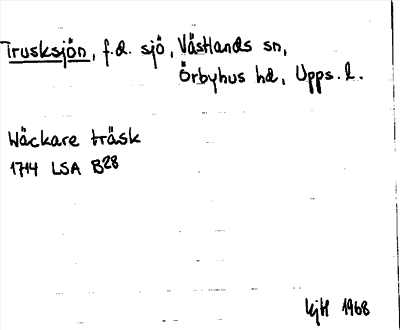 Trusksjön, f.d. sjö, Västlands sn,
Örbyhus hd, Upps. l.
Wäckare träsk
1714 LSA B28
1968